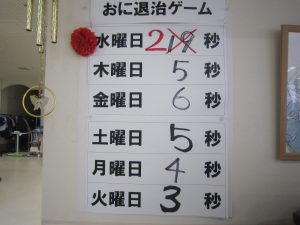 おに退治ゲーム
水曜日 2 19 秒
木曜日 5 秒
金曜日 6 秒
土曜日 5 秒
月曜日 4 秒
火曜日 3 秒